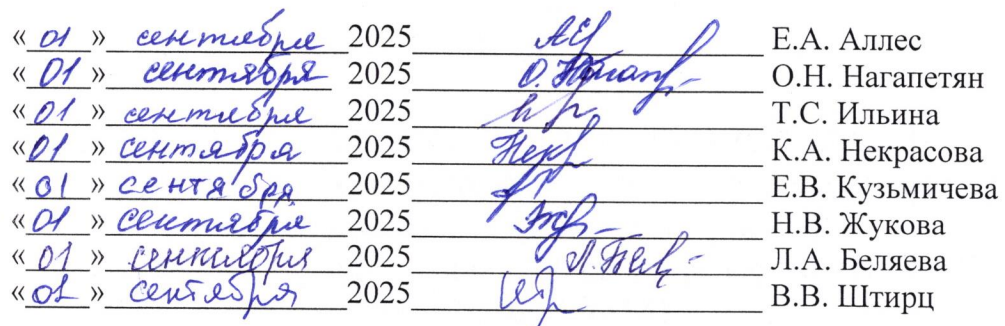 « 01 » сентября 2025 Е.А. Аллес
« 01 » сентября 2025 О.Н. Нагапетян
« 01 » сентября 2025 Т.С. Ильина
« 01 » сентября 2025 К.А. Некрасова
« 01 » сентября 2025 Е.В. Кузьмичева
« 01 » сентября 2025 Н.В. Жукова
« 01 » сентября 2025 Л.А. Беляева
« 01 » сентября 2025 В.В. Штирц